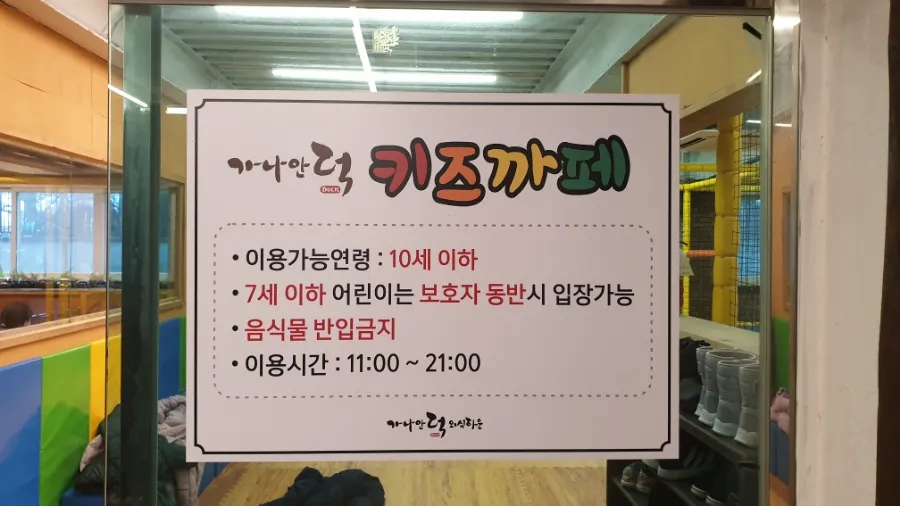 가나안덕 키즈까페
DUCK
• 이용가능연령 : 10세 이하
• 7세 이하 어린이는 보호자 동반시 입장가능
• 음식물 반입금지
• 이용시간 : 11:00 ~ 21:00
가나안덕 의식하운